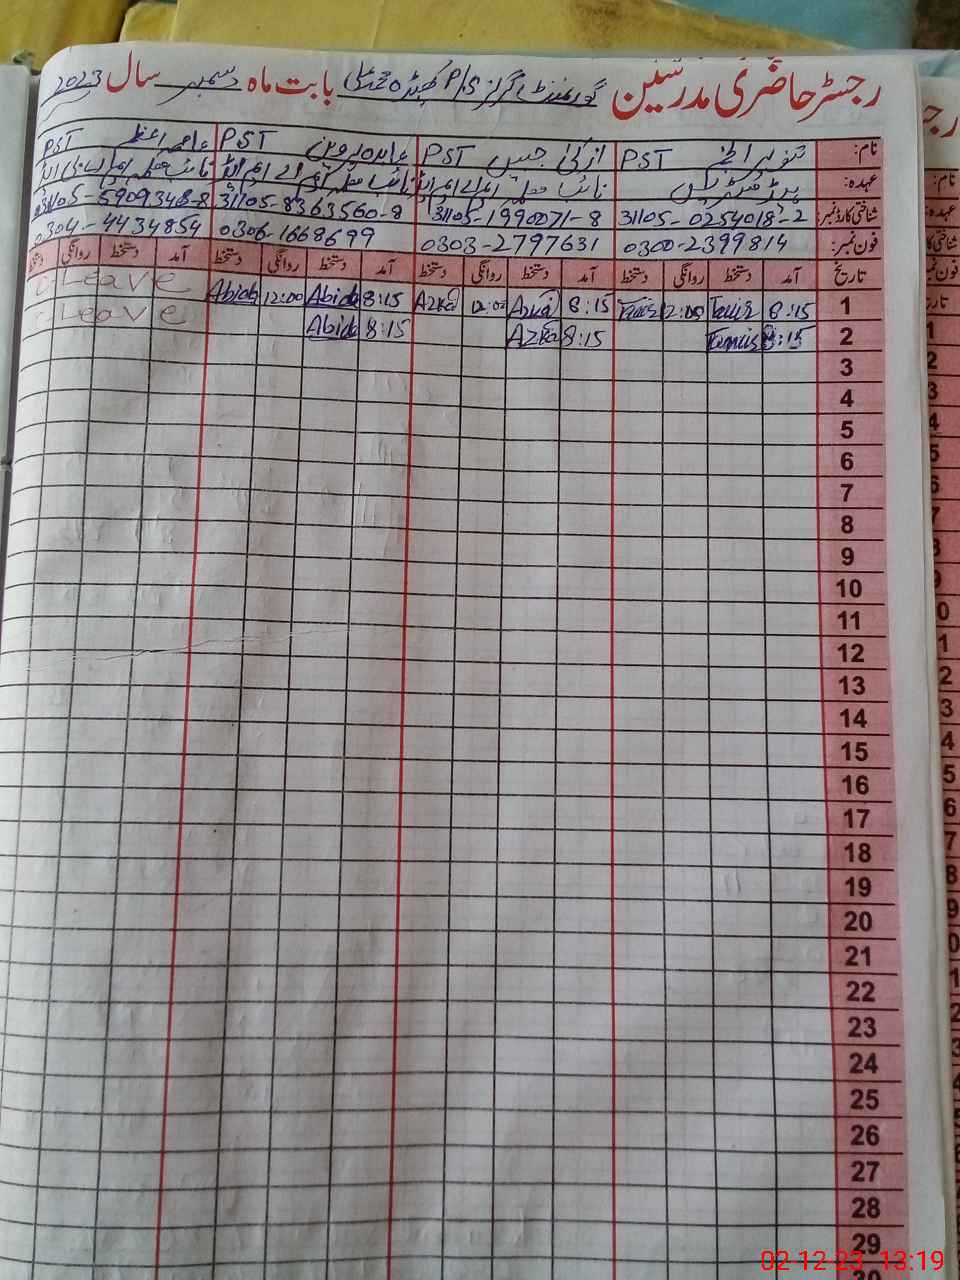 رجسٹر حاضری مدرسین گورنمنٹ گرلز P/S بابت ماہ دسمبر سال 2023
نام: PST PST PST عابدہ پروین PST
عہدہ: ہیڈ مسٹریس
شناختی کارڈ نمبر: 31105-0254018-2 31105-1990071-8 31105-8363560-8 31105-5909348-8
فون نمبر: 0300-2399814 0303-2797631 0306-1668699 0304-4434854
تاریخ آمد دستخط روانگی دستخط آمد دستخط روانگی دستخط آمد دستخط روانگی دستخط آمد دستخط روانگی دستخط
1 8:15 12:00 8:15 Azka 12:00 Azka 8:15 Abida 12:00 Abida Leave
2 8:15 8:15 Azka 8:15 Abida Leave
3
4
5
6
7
8
9
10
11
12
13
14
15
16
17
18
19
20
21
22
23
24
25
26
27
28
29
30
02-12-23 13:19